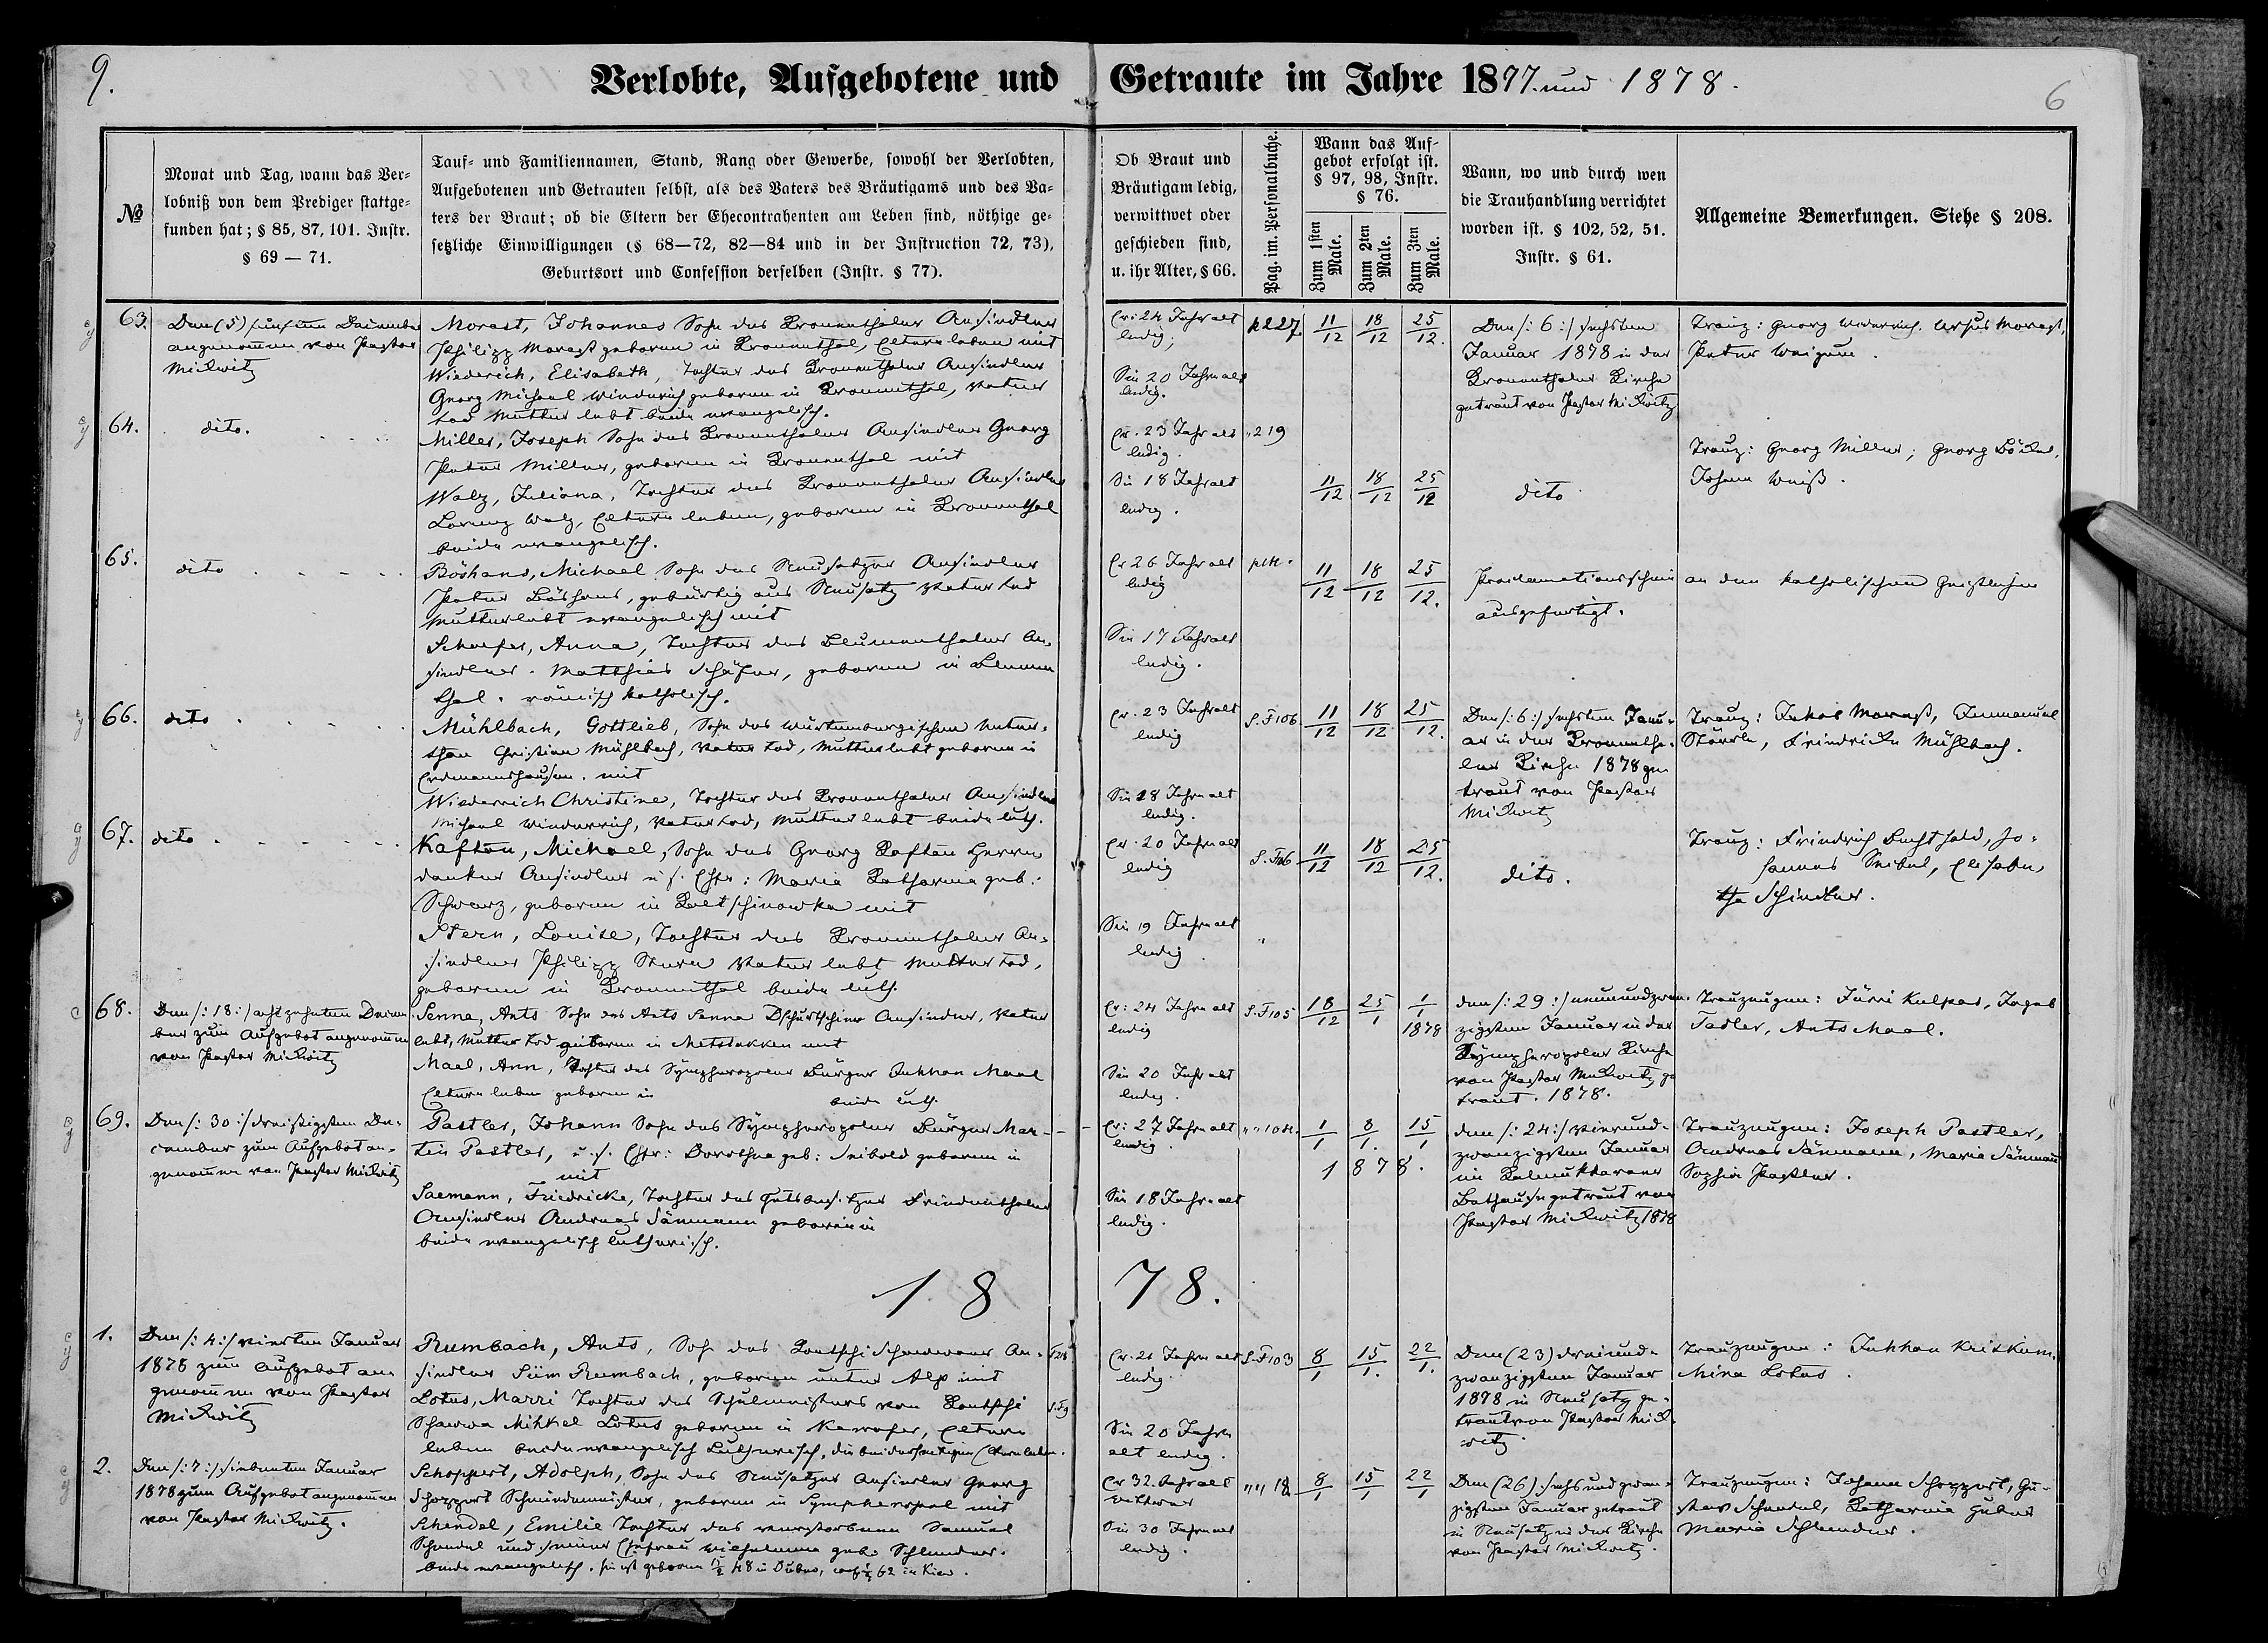 9.
6
Verlobte, Aufgebotene und Getraute im Jahre 1877. und 1878.
№
Monat und Tag, wann das Ver=
lobniß von dem Prediger stattge=
funden hat; § 85, 87, 101. Instr.
§ 69 — 71.
Tauf= und Familiennamen, Stand, Rang oder Gewerbe, sowohl der Verlobten,
Aufgebotenen und Getrauten selbst, als des Vaters des Bräutigams und des Va=
ters der Braut; ob die Eltern der Ehecontrahenten am Leben sind, nöthige ge=
setzliche Einwilligungen (§ 68—72, 82—84 und in der Instruction 72, 73),
Geburtsort und Confession derselben (Instr. § 77).
Ob Braut und
Bräutigam ledig,
verwittwet oder
geschieden sind,
u. ihr Alter, § 66.
Pag. im. Personalbuche.
Wann das Auf=
gebot erfolgt ist.
§ 97, 98, Instr.
§ 76.
Zum 1sten Male.
Zum 2ten Male.
Zum 3ten Male.
Wann, wo und durch wen
die Trauhandlung verrichtet
worden ist. § 102, 52, 51.
Instr. § 61.
Allgemeine Bemerkungen. Siehe § 208.
63.
Den (5) fünften December
angenommen von Pastor
Mickwitz
Morast, Johannes Sohn des Kronenthaler Ansiedlers
Philipp Morast geboren in Kronenthal, Eltern leben mit
Wiederich, Elisabeth, Tochter des Kronenthaler Ansiedlers
Georg Michael Wiederich geboren in Kronenthal, Vater
tod Mutter lebt beide evangelisch.
Er: 24 Jahr alt
ledig;
Sie 20 Jahre alt
ledig.
p 227.
11/12 18/12 25/12.
Den /: 6 :/ sechsten
Januar 1878 in der
Kronenthaler Kirche
getraut von Pastor Mickwitz
Trauz: Georg Wiederich. Ursus Morast,
Peter Weigum.
64.
dito.
Miller, Joseph Sohn des Kronenthaler Ansiedlers Georg
Peter Miller, geboren in Kronenthal mit
Walz, Juliana, Tochter des Kronenthaler Ansiedlers
Lorenz Walz, Eltern leben, geboren in Kronenthal
beide evangelisch.
Er. 23 Jahr alt
ledig.
Sie 18 Jahr alt
ledig.
" 219
11/12 18/12 25/12
dito
Trauz: Georg Miller; Georg Böckel,
Johann Weiß.
65.
dito
Böshans, Michael Sohn des Neusatzer Ansiedlers
Peter Böshans, gebürtig aus Neusatz Vater tod
Mutter lebt evangelisch mit
Schaefer, Anna, Tochter des Blumenthaler An=
siedlers. Matthias Schäfer, geboren in Blumen
thal. römisch katholisch.
Er 26 Jahr alt
ledig
Sie 17 Jahr alt
ledig.
11/12 18/12 25/12.
Proclamationsschein an den katholischen Geistlichen
ausgefertigt.
66.
dito
Mühlbach, Gottlieb, Sohn des würtembergischen Unter=
than Christian Mühlbach, Vater tod, Mutter lebt geboren in
Erdmannshausen. mit
Wiederrich Christine, Tochter des Kronenthaler Ansiedlers
Michael Wiederrich, Vater tod, Mutter lebt beide luth.
Er. 23 Jahr alt
ledig
Sie 18 Jahre alt
ledig.
S. F 106.
11/12 18/12 25/12.
Den /: 6 :/ sechsten Janu=
ar in der Kronentha=
ler Kirche 1878 ge
traut von Pastor
Mickwitz
Trauz: Jakob Morast, Immanuel
Störrle, Friedricke Mühlbach.
67.
dito
Kaftan, Michael, Sohn des Georg Kaftan
Ansiedlers u. s. Ehfr: Maria Katharina geb:
Schwarz, geboren in mit
Stern, Louise, Tochter des Kronenthaler An=
siedlers Philipp Stern Vater lebt Mutter tod,
geboren in Kronenthal beide luth.
Er. 20 Jahre alt
ledig
Sie 19 Jahre alt
ledig.
11/12 18/12 25/12.
dito.
Trauz: Friedrich Bechthold, Jo=
hannes Seibel, Elisabe,
tha Schindler.
68.
Den /: 18 :/ achtzehnten Decem
ber zum Aufgebot angenommen
von Pastor Mickwitz
Senna, Ants Sohn des Ants Senna Ansiedler, Vater
lebt, Mutter tod geboren in Metstakken mit
Maal, Ann, Tochter des Sympheropoler Bürger Juhhan Maal
Eltern leben geboren in beide luth.
Er: 24 Jahre alt
ledig
Sie 20 Jahr alt
ledig.
S. F 105
18/12 25/1 1/1 1878
den /: 29 :/ neunundzwan=
zigsten Januar in der
Sympheropoler Kirche
von Pastor Mickwitz ge
traut. 1878.
Trauzeugen: Jürri Kulpas, Jageb
Tadler, Ants Maal.
69.
Den /: 30 :/ dreißigsten De=
cember zum Aufgebot an=
genommen von Pastor Mickwitz
Pastler, Johann Sohn des Sympheropoler Bürger Mar=
tin Pastler, u. s. Ehfr: Dorothea geb: Seibold geboren in
mit
Saemann, Friedricke, Tochter des Gutsbesitzer Friedenthaler
Ansiedlers Andreas Sämann geboren in
beide evangelisch lutherisch.
Er: 27 Jahre alt
ledig.
Sie 18 Jahre alt
ledig.
" " 104.
1/1 8/1. 15/1
1878.
den /: 24 :/ vierund=
zwanzigsten Januar
im Kalmukkaraner
Bethause getraut von
Pastor Mickwitz 1878
Trauzeugen: Joseph Pastler,
Andreas Sämann, Maria Sämann
Sophia Pastler.
1878.
1.
Den /: 4 :/ vierten Januar
1878 zum Aufgebot an
genommen von Pastor
Mickwitz
Rumbach, Ants, Sohn des Kontschi Schauwaer An=
siedler Siim Rumbach, geboren unter Alp mit
Lotus, Marri Tochter des Schulmeisters von Kontschi
Schauwa Mihkel Lotus geboren in Kawafer, Eltern
leben beide evangelisch Lutherisch, die beiderseitigen Eltern leben.
Er. 21 Jahre alt
ledig
Sie 20 Jahre
alt ledig.
S. F 103
8/1 15/1. 22/1.
Den (23) dreiund=
zwanzigsten Januar
1878 in Neusatz ge=
traut von Pastor Mick=
witz.
Trauzeugen: Juhhan Kriskum.
Mina Lotus.
2.
Den /: 7 :/ siebenten Januar
1878 zum Aufgebot angenommen
von Pastor Mickwitz.
Schoppert, Adolph, Sohn des Neusatzer Ansiedlers Georg
Schoppert Schmiedemeister, geboren in Sympheropol mit
Schendel, Emilie Tochter des verstorbenen Samuel
Schendel und seiner Ehefrau Wilhelmine geb. Schlender.
beide evangelisch. sie ist geboren 48 in Dubno, 62 in Kiew.
Er 32 Jahr alt
Wittwer
Sie 30 Jahre alt
ledig.
" " 18
8/1 15/1 22/1
Den (26) sechsundzwan=
zigsten Januar getraut
in Neusatz in der Kirche
von Pastor Mickwitz.
Trauzeugen: Johann Schoppert, Gu=
stav Schendel, Katharina Huber
Maria Schlender.